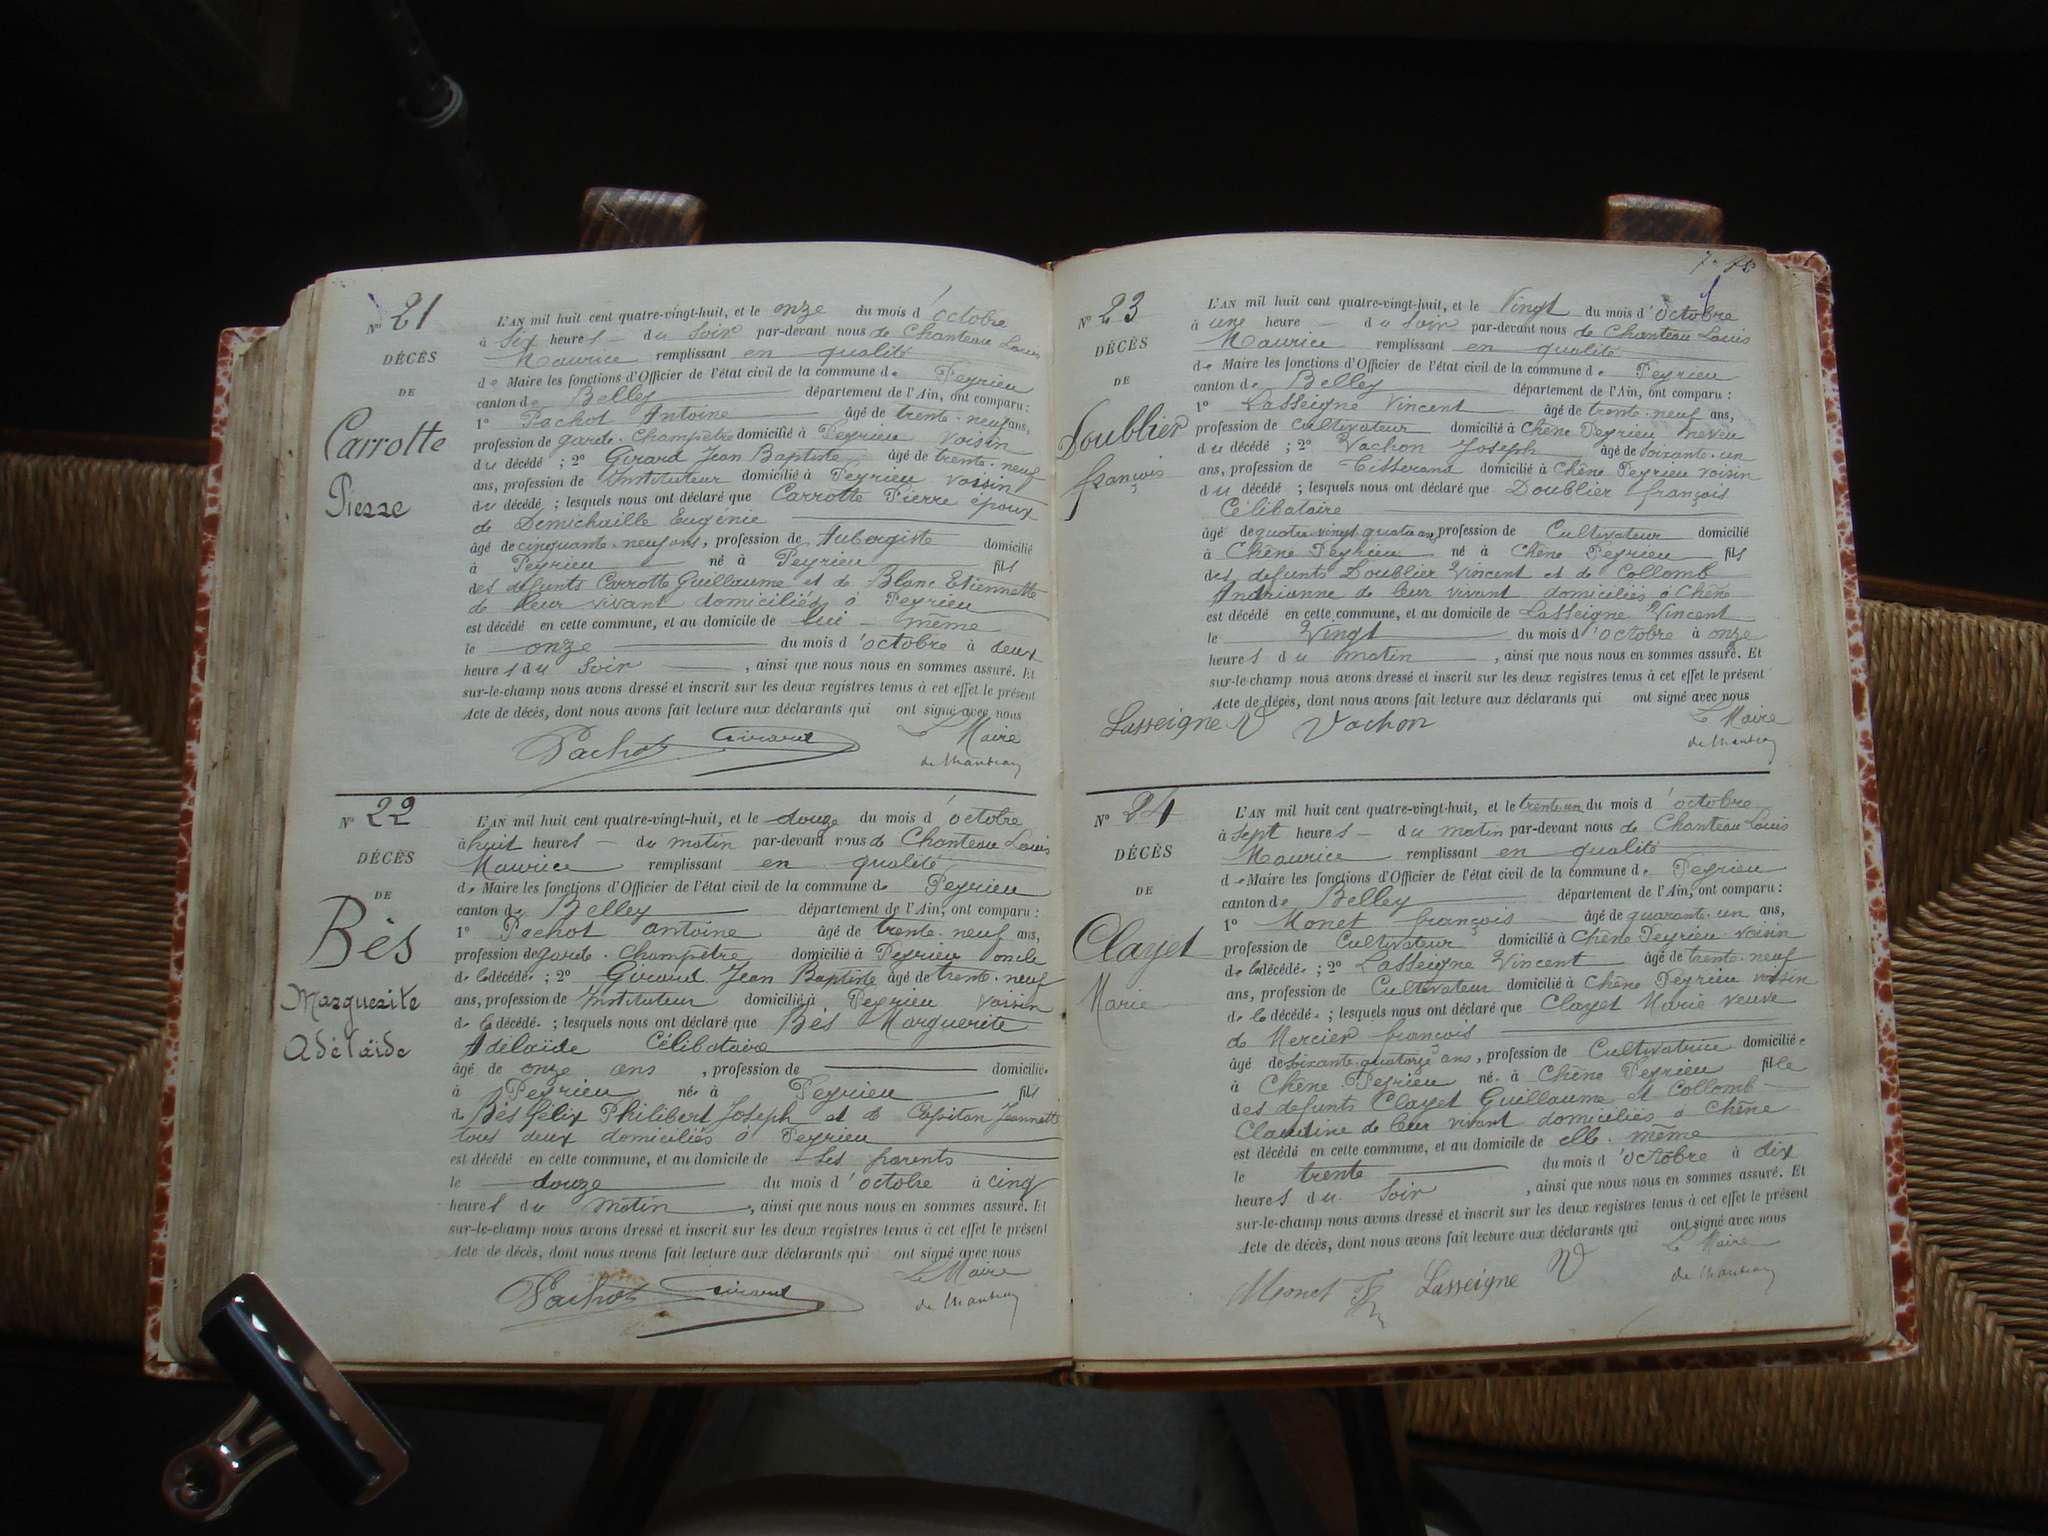 N° 21
DÉCÈS
DE
Carrotte
Pierre
L'AN mil huit cent quatre-vingt-huit, et le onze du mois d'octobre
à Six heures du Soir par-devant nous de Chanteau Louis
Maurice remplissant en qualité
de Maire les fonctions d'Officier de l'état civil de la commune de Peyrieu
canton de Belley département de l'Ain, ont comparu :
1° Pachot Antoine âgé de trente-neuf ans,
profession de garde-Champêtre domicilié à Peyrieu Voisin
du décédé ; 2° Girard Jean Baptiste âgé de trente-neuf
ans, profession de Instituteur domicilié à Peyrieu Voisin
du décédé ; lesquels nous ont déclaré que Carrotte Pierre époux
de Demichaille Eugénie
âgé de cinquante-neuf ans, profession de Aubergiste domicilié
à Peyrieu né à Peyrieu fils
des défunts Carrotte Guillaume et de Blanc Etiennette
de leur vivant domiciliés à Peyrieu
est décédé en cette commune, et au domicile de lui-même
le onze du mois d'octobre à deux
heures du Soir, ainsi que nous nous en sommes assuré. Et
sur-le-champ nous avons dressé et inscrit sur les deux registres tenus à cet effet le présent
Acte de décès, dont nous avons fait lecture aux déclarants qui ont signé avec nous
Le Maire
Pachot Girard
N° 22
DÉCÈS
DE
Bès
Marguerite
Adélaïde
L'AN mil huit cent quatre-vingt-huit, et le douze du mois d'octobre
à huit heures du matin par-devant nous de Chanteau Louis
Maurice remplissant en qualité
de Maire les fonctions d'Officier de l'état civil de la commune de Peyrieu
canton de Belley département de l'Ain, ont comparu :
1° Pachot Antoine âgé de trente-neuf ans,
profession de garde-Champêtre domicilié à Peyrieu oncle
de la décédée ; 2° Girard Jean Baptiste âgé de trente-neuf
ans, profession de Instituteur domicilié à Peyrieu Voisin
de la décédée ; lesquels nous ont déclaré que Bès Marguerite
Adélaïde Célibataire
âgé de onze ans, profession de domiciliée
à Peyrieu née à Peyrieu fils
de Bès félix Philibert Joseph et de Capitan Jeannette
tous deux domiciliés à Peyrieu
est décédé en cette commune, et au domicile de Ses parents
le douze du mois d'octobre à cinq
heures du matin, ainsi que nous nous en sommes assuré. Et
sur-le-champ nous avons dressé et inscrit sur les deux registres tenus à cet effet le présent
Acte de décès, dont nous avons fait lecture aux déclarants qui ont signé avec nous
Le Maire
Pachot Girard
N° 23
DÉCÈS
DE
Doublier
françois
L'AN mil huit cent quatre-vingt-huit, et le Vingt du mois d'octobre
à une heure du Soir par-devant nous de Chanteau Louis
Maurice remplissant en qualité
de Maire les fonctions d'Officier de l'état civil de la commune de Peyrieu
canton de Belley département de l'Ain, ont comparu :
1° Lasseigne Vincent âgé de trente-neuf ans,
profession de Cultivateur domicilié à Chêne Peyrieu neveu
du décédé ; 2° Vachon Joseph âgé de soixante-un
ans, profession de Tisserand domicilié à Chêne Peyrieu Voisin
du décédé ; lesquels nous ont déclaré que Doublier françois
Célibataire
âgé de quatre vingt quatre ans, profession de Cultivateur domicilié
à Chêne Peyrieu né à Chêne Peyrieu fils
des défunts Doublier Vincent et de Collomb
Andrianne de leur vivant domiciliés à Chêne
est décédé en cette commune, et au domicile de Lasseigne Vincent
le Vingt du mois d'octobre à onze
heures du matin, ainsi que nous nous en sommes assuré. Et
sur-le-champ nous avons dressé et inscrit sur les deux registres tenus à cet effet le présent
Acte de décès, dont nous avons fait lecture aux déclarants qui ont signé avec nous
Lasseigne V Vachon Le Maire
N° 24
DÉCÈS
DE
Clayet
Marie
L'AN mil huit cent quatre-vingt-huit, et le trente un du mois d'octobre
à Sept heures du matin par-devant nous de Chanteau Louis
Maurice remplissant en qualité
de Maire les fonctions d'Officier de l'état civil de la commune de Peyrieu
canton de Belley département de l'Ain, ont comparu :
1° Monet françois âgé de quarante-un ans,
profession de Cultivateur domicilié à Chêne Peyrieu Voisin
de la décédée ; 2° Lasseigne Vincent âgé de trente-neuf
ans, profession de Cultivateur domicilié à Chêne Peyrieu voisin
de la décédée ; lesquels nous ont déclaré que Clayet Marie veuve
de Mercier françois
âgé de soixante-quatorze ans, profession de Cultivatrice domiciliée
à Chêne Peyrieu née à Chêne Peyrieu fille
des défunts Clayet Guillaume et Collomb
Claudine de leur vivant domiciliés à Chêne
est décédé en cette commune, et au domicile de elle-même
le trente du mois d'octobre à dix
heures du Soir, ainsi que nous nous en sommes assuré. Et
sur-le-champ nous avons dressé et inscrit sur les deux registres tenus à cet effet le présent
Acte de décès, dont nous avons fait lecture aux déclarants qui ont signé avec nous
Le Maire
Monet Lasseigne V